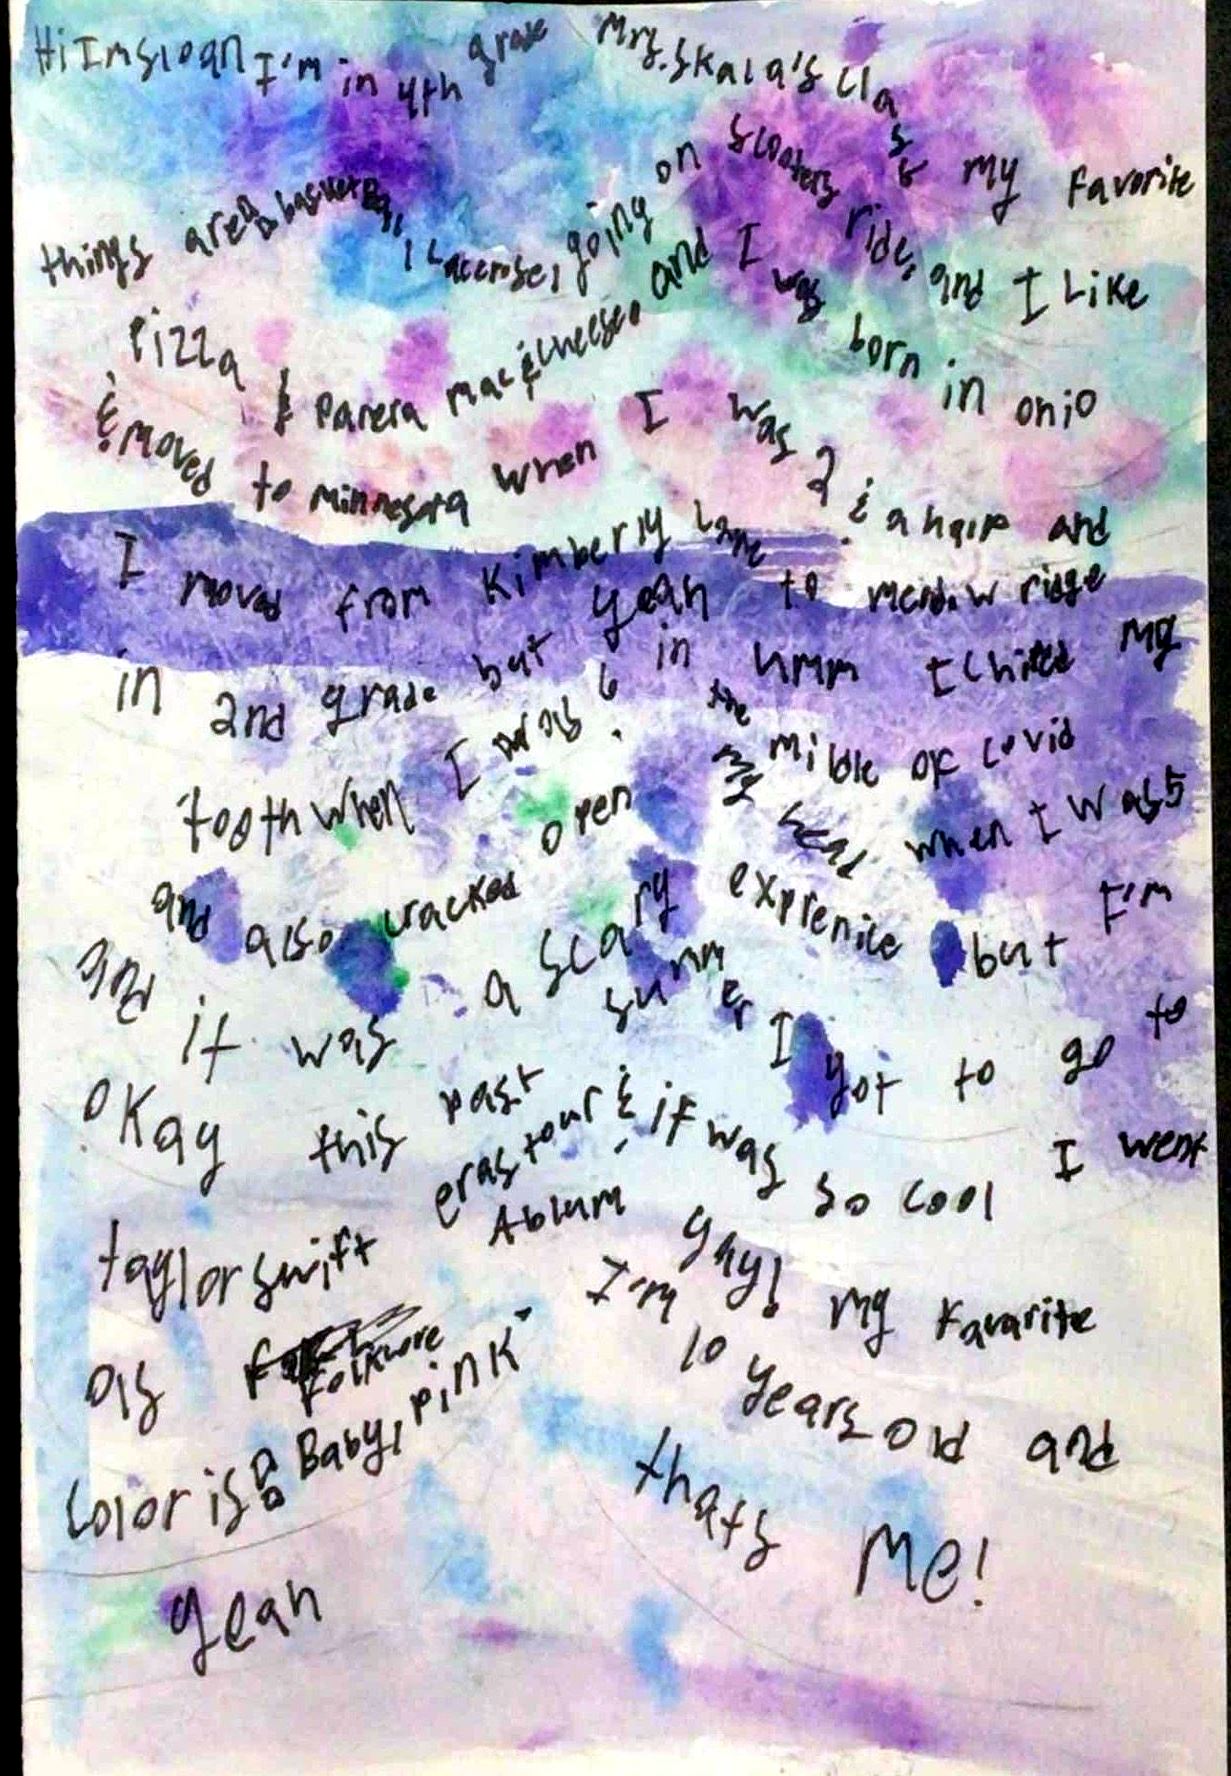 Hi Im sloan I'm in 4th grade Mrs. Skala's class my favorite
things are basketBall, Laccrose, going on scooters ride, and I Like
Pizza & Panera mac & cheese. and I was born in ohio
& moved to minnesota when I was 2 & a half and
I moved from Kimberly Lane to meadow ridge
in 2nd grade but yeah in umm I chited my
tooth when I was 6. in the mible of covid
and also cracked open my head when I was 5
and it was a scary exprenice but I'm
okay this past summer I got to go to
taylor swift eras tour & it was so cool I went
as Folkwore Ablum yay! my Favarite
color is: Baby, pink. I'm 10 years old and
yeah thats Me!